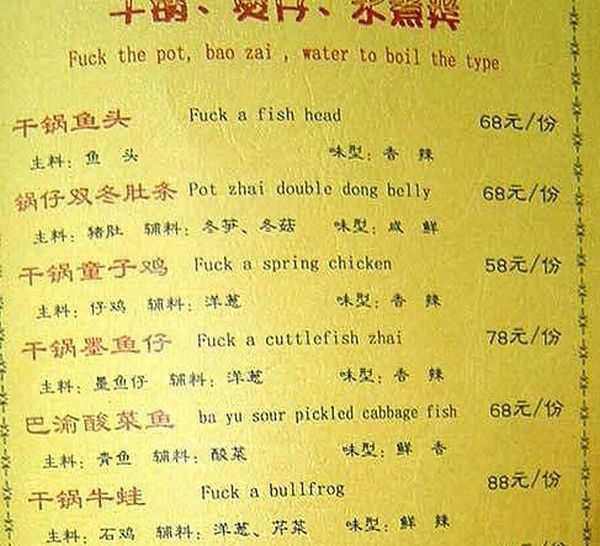 干锅、煲仔、水煮类
Fuck the pot, bao zai , water to boil the type
干锅鱼头 Fuck a fish head 68元/份
主料：鱼 头 味型：香 辣
锅仔双冬肚条 Pot zhai double dong belly 68元/份
主料：猪肚 辅料：冬笋、冬菇 味型：咸 鲜
干锅童子鸡 Fuck a spring chicken 58元/份
主料：仔鸡 辅料：洋葱 味型：香 辣
干锅墨鱼仔 Fuck a cuttlefish zhai 78元/份
主料：墨鱼仔 辅料：洋葱 味型：香 辣
巴渝酸菜鱼 ba yu sour pickled cabbage fish 68元/份
主料：青鱼 辅料：酸菜 味型：鲜 香
干锅牛蛙 Fuck a bullfrog 88元/份
主料：石鸡 辅料：洋葱、芹菜 味型：鲜 辣